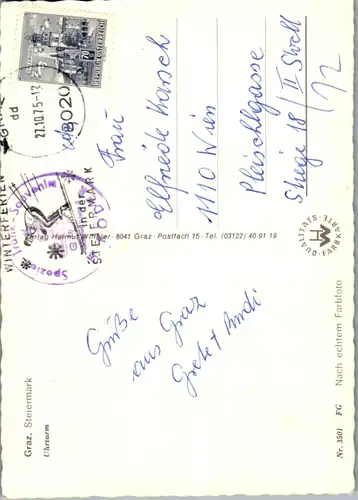 Graz, Steiermark
Uhrturm
Grüße
aus Graz
Grete +
8020
27.10.75-12
dd
REPUBLIK ÖSTERREICH
WINTERFERIEN
in der
STEIERMARK
Frau
Elfriede Warsch
1110 Wien
Pleischlgasse
Stiege 18/II Stock
/12
Verlag Helmut Winkler · 8041 Graz · Postfach 15 · Tel. (03122) 40 91 19
QUALITÄTS-
FARBKARTE
Nr. 3501 FG Nach echtem Farbfoto